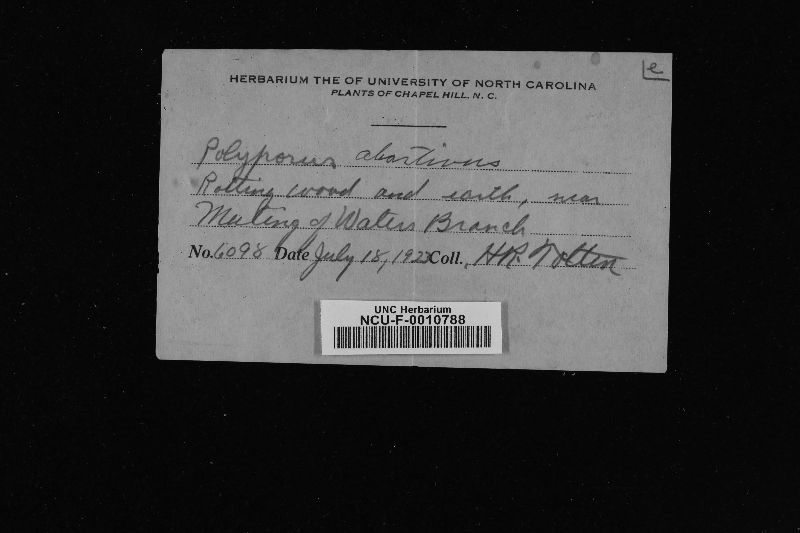 e
HERBARIUM THE OF UNIVERSITY OF NORTH CAROLINA
PLANTS OF CHAPEL HILL, N. C.
Polyporus abortivus
Rotting wood and earth, near
Meeting of Waters Branch
No. 6098 Date July 18, 1923 Coll. H.R. Totten
UNC Herbarium
NCU-F-0010788